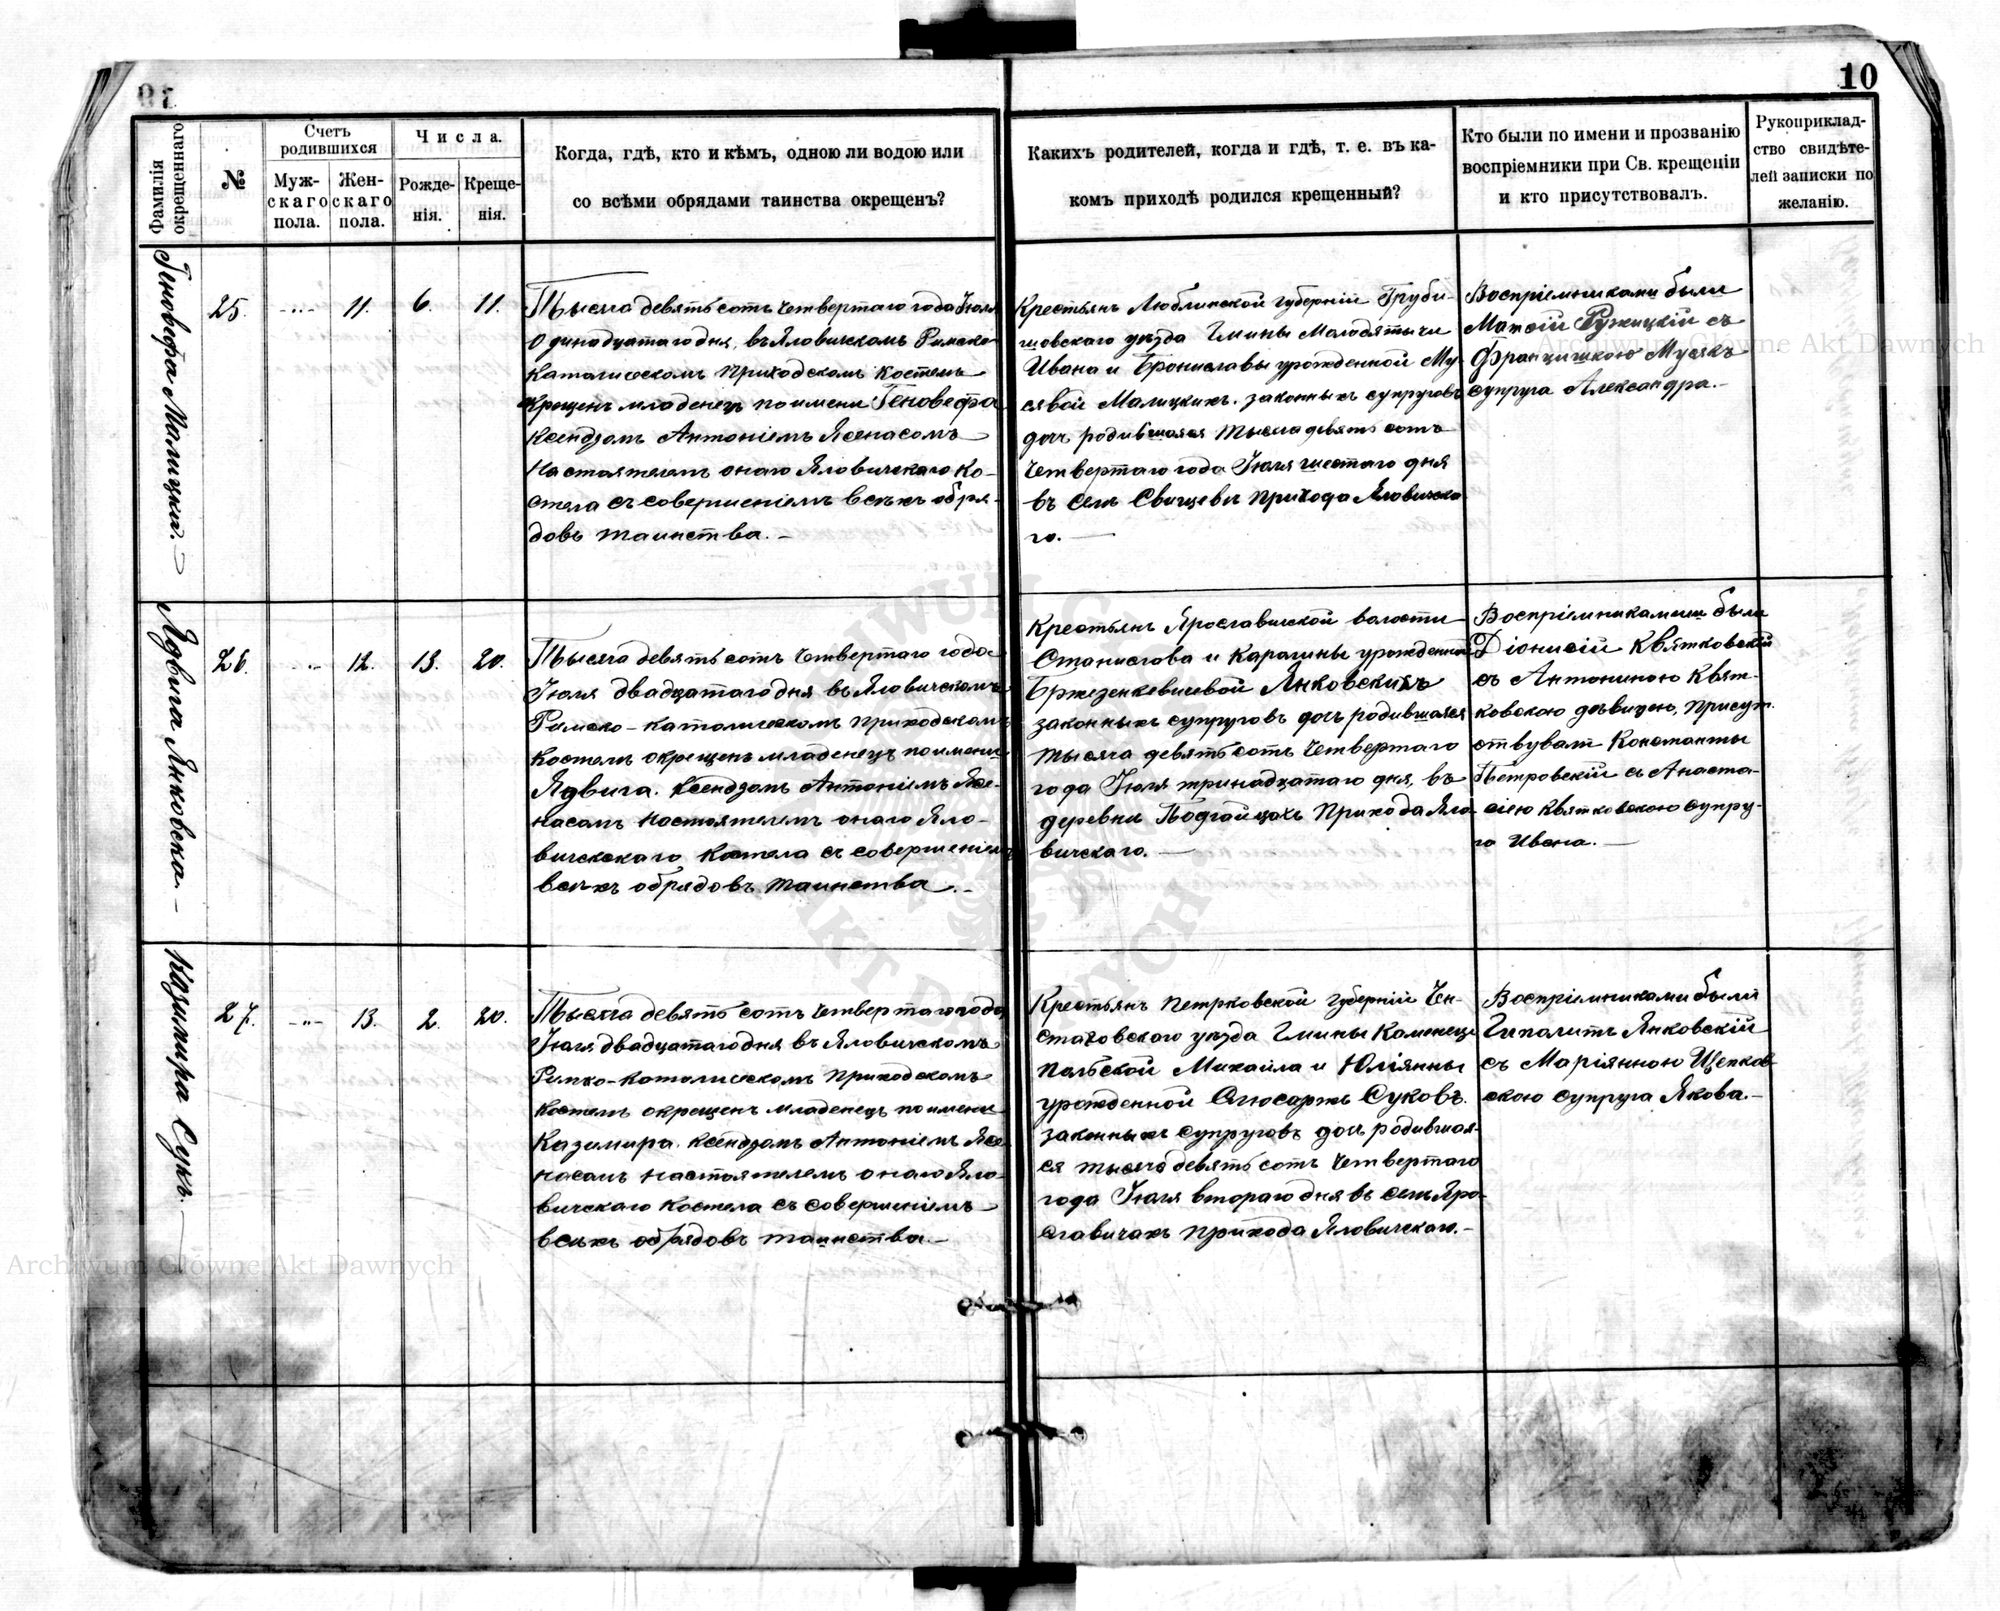 10
Фамилія
окрещеннаго
№
Счетъ
родившихся
Муж-
скаго
пола.
Жен-
скаго
пола.
Числа.
Рожде-
нія.
Креще-
нія.
Когда, гдѣ, кто и кѣмъ, одною ли водою или
со всѣми обрядами таинства окрещенъ?
Какихъ родителей, когда и гдѣ, т. е. въ ка-
комъ приходѣ родился крещенный?
Кто были по имени и прозванію
воспріемники при Св. крещеніи
и кто присутствовалъ.
Рукоприклад-
ство свидѣте-
лей записки по
желанію.
Геновефа Малицкій.
25.
-"-
11.
6.
11.
Тысяча девятьсотъ четвертаго года Іюля
одинадцатаго дня, въ Яловичскомъ Римско-
Католическомъ приходскомъ костелѣ
крещенъ младенецъ по имени Геновефа
Ксендзомъ Антоніемъ Ясенасомъ
Настоятелемъ онаго Яловичскаго Ко-
стела съ совершеніемъ всѣхъ обря-
довъ таинства. -
Крестьянъ Люблинской губерніи Груби-
шовскаго уѣзда Гмины Молодятычи
Ивана и Брониславы урожденной Му-
сявой Малицкихъ. законныхъ супруговъ
дочь родившаяся тысяча девятьсотъ
четвертаго года Іюля шестаго дня
въ селѣ Свищевѣ прихода Яловичска-
го. -
Воспріемниками были
Матѳій Ружицкій съ
Францишкою Мусякъ
супруга Александра. -
Ядвига Янковска. -
26.
-"-
12.
13.
20.
Тысяча девятьсотъ четвертаго года
Іюля двадцатаго дня въ Яловичскомъ
Римско-католическомъ приходскомъ
костелѣ окрещенъ младенецъ по имени
Ядвига. Ксендзомъ Антоніемъ Ясе-
насомъ настоятелемъ онаго Яло-
вичскаго костела съ совершеніемъ
всѣхъ обрядовъ таинства. -
Крестьянъ Ярославичской волости
Станислава и Каролины урожденной
Бржезенкевичевой Янковскихъ
законныхъ супруговъ дочь родившаяся
тысяча девятьсотъ четвертаго
года Іюля тринадцатаго дня, въ
деревни Подгайцахъ Прихода Яло
вичскаго. -
Воспріемниками были
Діонисій Квятковскій
съ Антониною Квят-
ковскою дѣвицею, присут-
ствували Константы
Петровскій съ Анаста-
сіею Квятковскою супру-
га Ивана. -
Казимира Сукъ.
27.
-"-
13.
2.
20.
Тысяча девятьсотъ четвертаго года
Іюля двадцатаго дня въ Яловичскомъ
Римско-Католическомъ приходскомъ
костелѣ окрещенъ младенецъ по имени
Казимира. Ксендзомъ Антоніемъ Ясе-
насомъ настоятелемъ онаго Яло-
вичскаго костела съ совершеніемъ
всѣхъ обрядовъ таинства. -
Крестьянъ Петрковской губерніи Чен-
стаховскаго уѣзда Гмины Каменецъ
Польской Михаила и Юліянны
урожденной Слюсаржъ Суковъ.
законныхъ супруговъ дочь родившая-
ся тысяча девятьсотъ четвертаго
года Іюля втораго дня въ селѣ Яро-
славичахъ прихода Яловичскаго. -
Воспріемниками были
Гиполитъ Янковскій
съ Маріянною Щепков-
скою супруга Якова. -
Archiwum Główne Akt Dawnych
Archiwum Główne Akt Dawnych